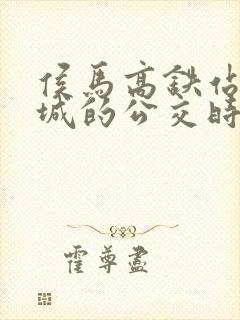 侯马高铁站
城的公交时
霍尊盏